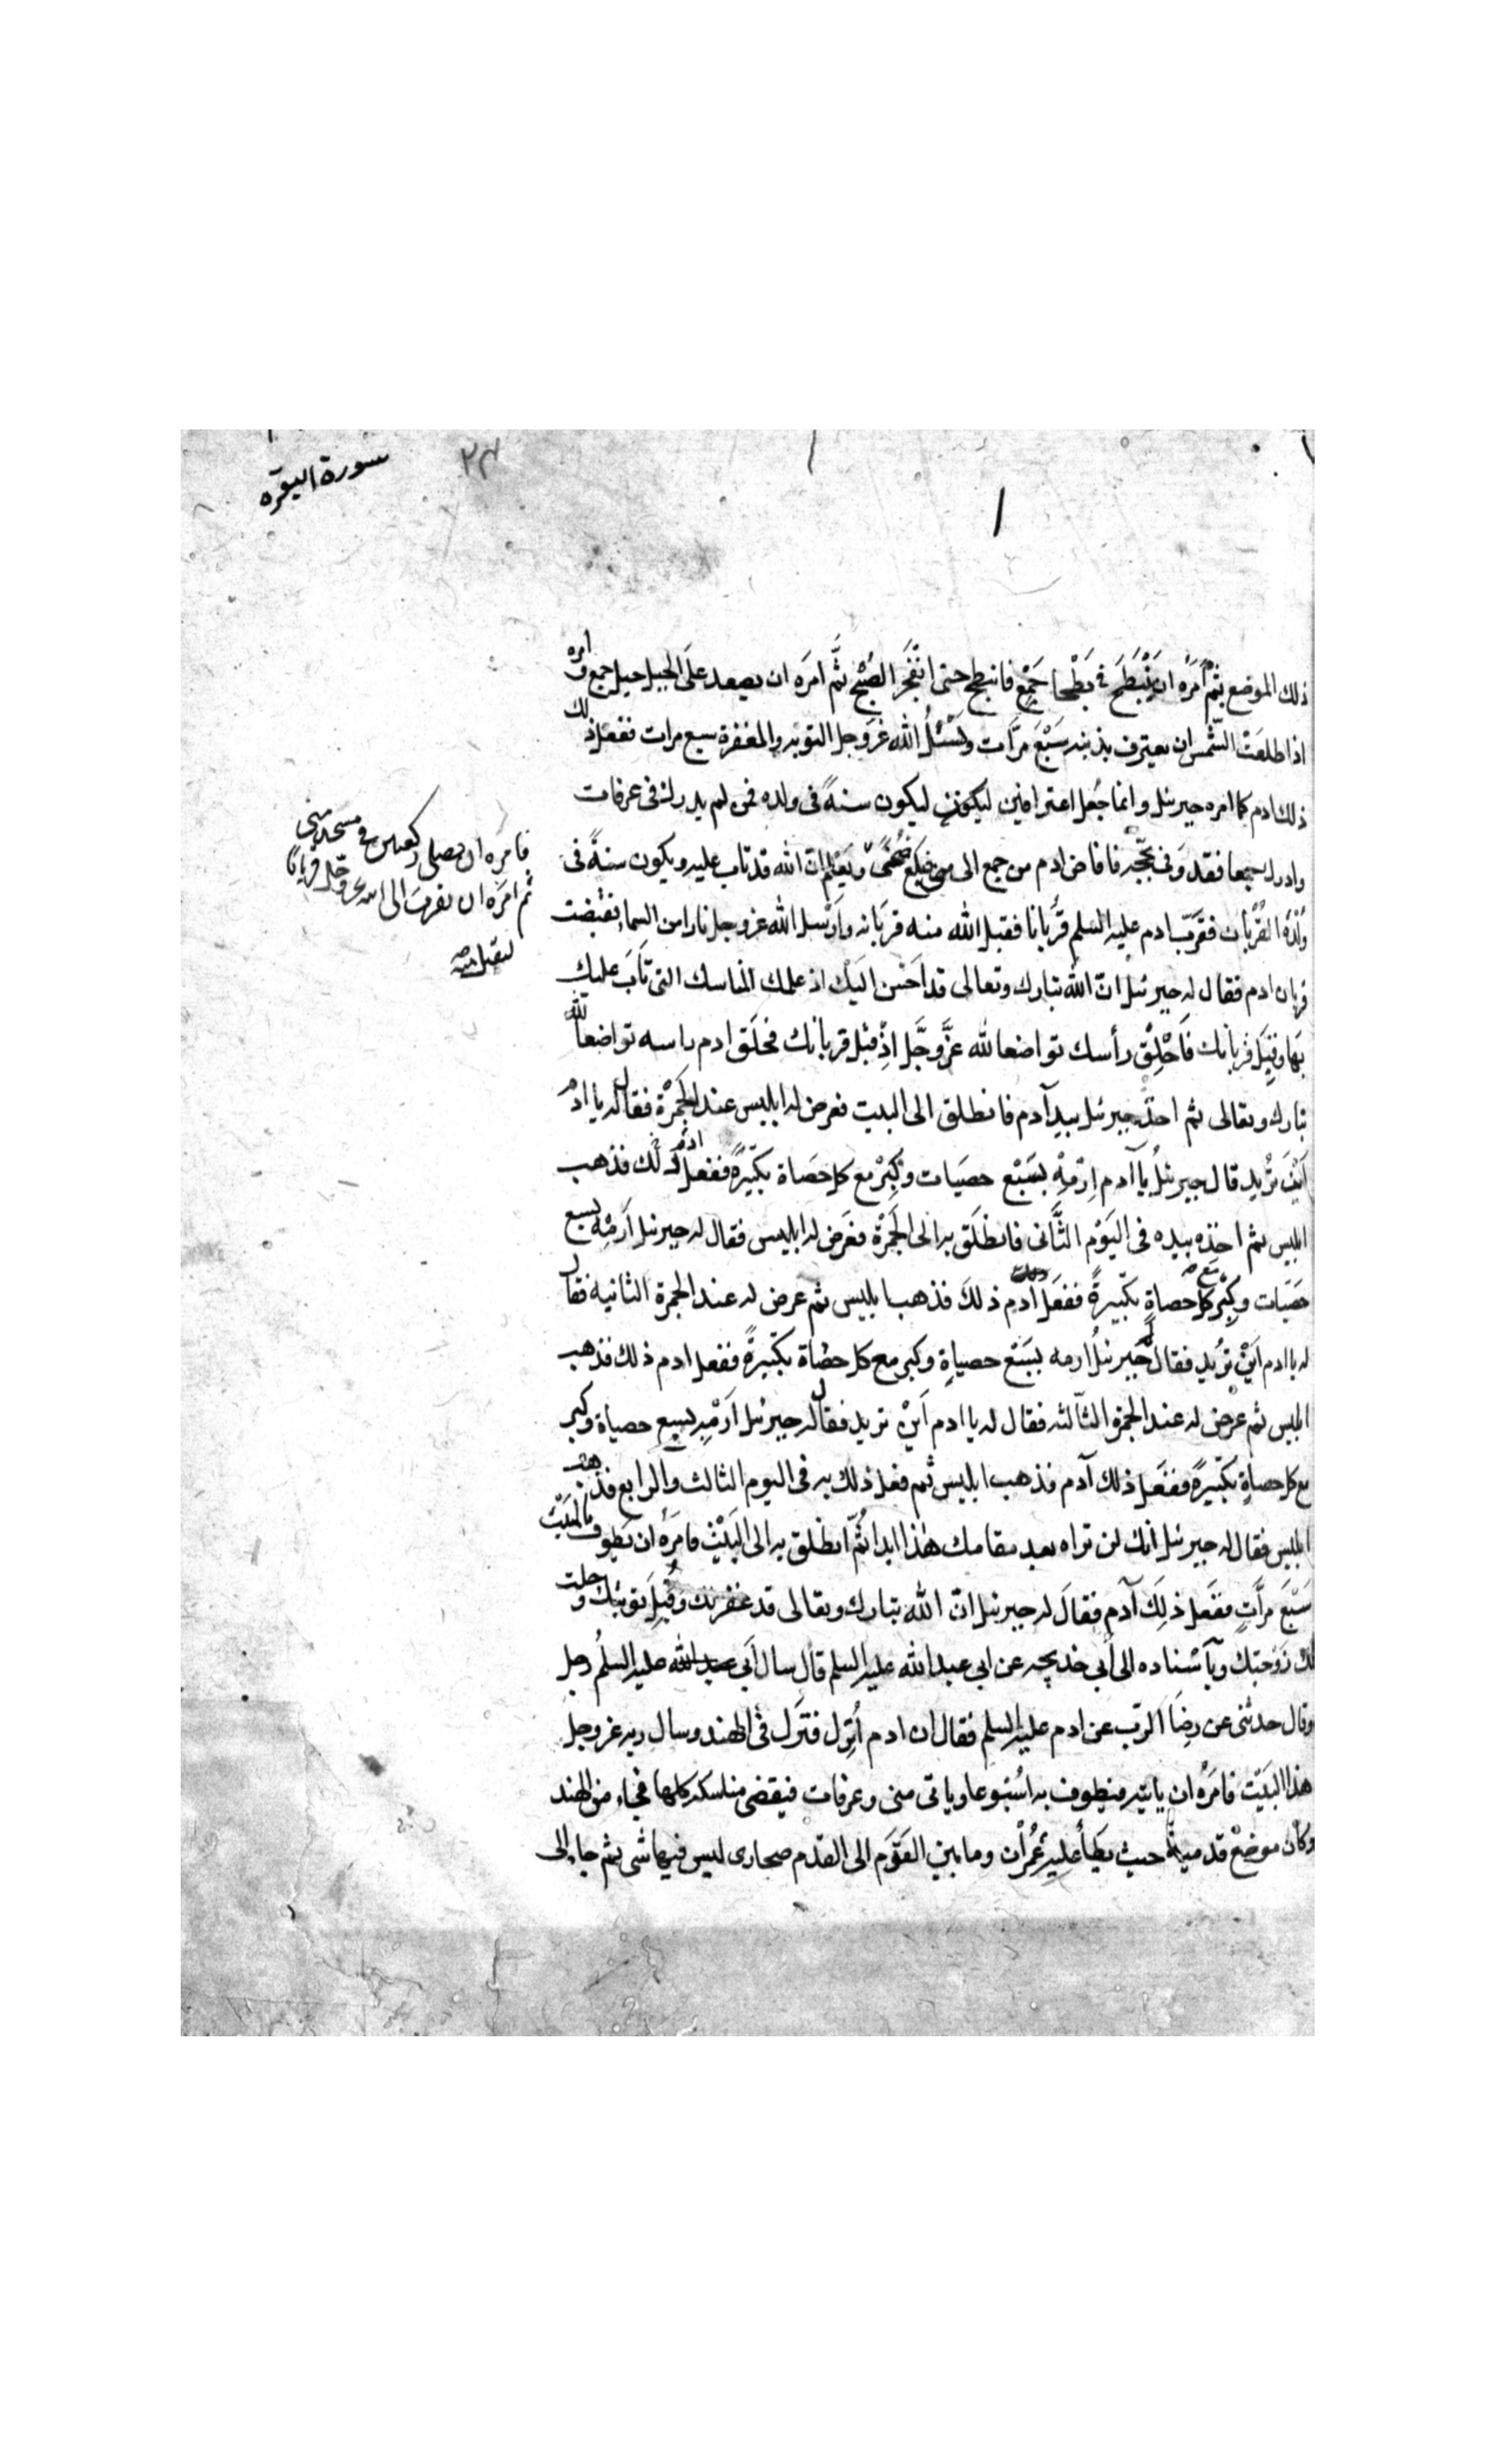 سورة البقره
٢٣
ذلك الموضع ثم امَرَه ان يَنْبَطَحَ فى بَطْحا جَمْعٍ فانبطح حتى انْفَجَرَ الصُبْح ثُمَّ امَرَه ان يصعد علَى الجبل جبل جمع وامره
اذا طلعَت الشّمس ان يعترف بذنبه سَبْعَ مرَّات ويَسْئلُ الله عَزّوجل التوبه والمغفرة سبع مرات ففعل ذلك
ذلك ادم كما امره جبرئل وانما جُعِل اعترافين ليكون ليكون سنةً فى ولده فمن لم يدرك فى عرفات
وادرك جمعا فقد وَفى بحَجّه فافاض ادم من جمع الى منى فبلغ ضُحًى ويَعْلم ان الله قد تاب عليه ويكون سنةً فى
وُلْدِه القُرْبان فقرّب ادم عليه السلم قُربانا فقبل الله منه قربَانه وارْسل الله عزوجل نارا من السماء فقبضت
قربان ادم فقال له جبرئيل انّ الله تبارك وتعالى قد احَسَن اليَك اذ علمك المناسك التى تَابَ عليك
بهَا وقبِل قربانك فَاحْلِق رأسك تواضعا لله عَزَّوجَّل اذْ قبل قربانك فحلَق ادم راسه تواضعاً لله
تبارك وتعالى ثم اخذ جبرئل بيد آدم فانطلق الى البيت فعرض له ابليس عند الجَمْرة فقال له يا ادم
اَيْنَ تُريد قال جبرئلُ يا آدم اِرْمِهْ بسَبْع حصَيات وكَبِّرْ مع كل حَصَاة تكبّيرةً ففعل ادم ذلك فذهب
ابليس ثم اخذه بيده فى اليَوْم الثَّانى فانطَلَق به الى الجَمْرة فعَرض له ابليس فقال له جبرئل اَرْمِه بسبع
حصَيات وكبِّر مع كل حصاةٍ تكبّيرةً ففعَل ادم ذلكَ فذهب ابليس ثم عرض له عند الجمرة الثانيه فقال
له يا ادم اَيْنَ تريد فقال له جبرئلُ ارمه بسَبْع حصياةٍ وكبر مع كل حصاة تكبّيرةً ففعل ادم ذلك فذهب
ابليس ثم عرْض له عند الجمرة الثّالثه فقال له يا ادم اَيْنَ تريد فقال له جبرئل اَرْمِه بسبع حصياة وكبر
مع كل حصاةٍ تكبّيرةً ففعَل ذلك آدم فذهب ابليس ثم فعل ذلك به فى اليوم الثالث والرابع فذهب
ابليس فقال له جبرئل انك لن تراه بعد مقامك هٰذا ابدا ثُمّ انطلق به الى البَيْتِ فامَرَهُ ان يَطوف بالبَيْت
سَبْعَ مرَّاتٍ ففعَل ذلِكَ آدم فقالَ له جبرئيل انّ الله تبارك وتعالى قد غفر لك وقُبِلَ توبتك وحلت
لك زَوْجتك وبآسْناده الى اَبى خديجه عن ابى عبد الله عليه السلم قال سال اَبى عبد الله عليه السلمُ رجل
وقال حدثنى عن رِضَا الربّ عن ادم عليه السلم فقال ان ادم اُنزِل فنَزل فى الهند وسال ربه عزوجل
هذا البَيْت فامَرْهُ ان ياتيه فيطوف به اسْبُوعا وياتى منى وعرفات فيقضى مناسكه كلها فجاء من الهند
وكان موضعْ قدميه حيث يَطأُ عليه عُمْران وما بين القَدَم الى القدَم صحارى ليس فيها شى ثم جاء الى
فامَره ان يصلى ركعتين فى مسجد منى
ثم امَرَه ان يقربَ الى الله عزوجل قربانًا
ليقبل منه